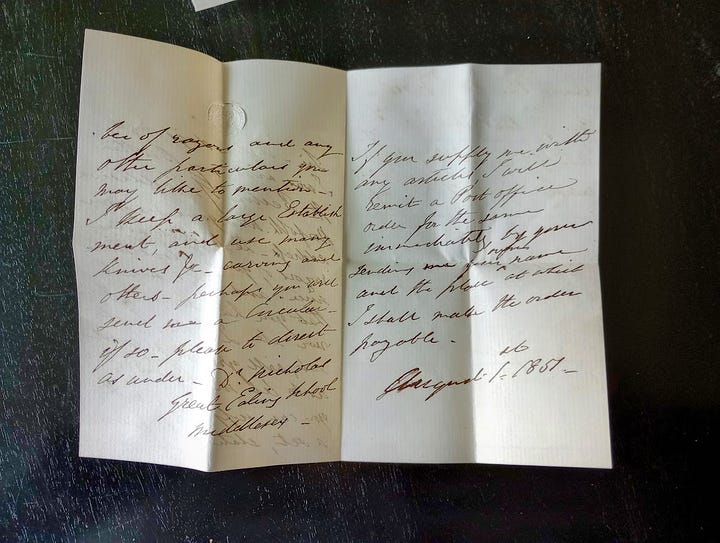 ber of razors and any
other particulars you
may like to mention -
I keep a large Establish
ment, and use many
Knives for carving and
others - perhaps you will
send me a Circular -
if so - please to direct
as under - Dr Nicholas
Great Ealing School
Middlesex -
If you supply me with
any articles I will
remit a Post office
order for the same
immediately by your
sending me your name
and the place at which
I shall make the order
payable -
August 1st 1851 -